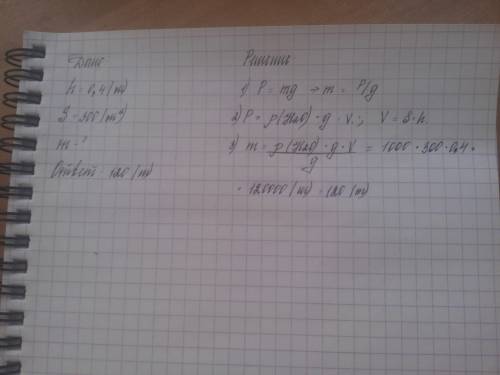 Дано
h = 0,4 (м)
S = 300 (м²)
m - ?
Ответ: 120 (т)
Решение
1) P = mg → m = P/g
2) P = ρ(H2O) · g · V; V = S · h.
3) m = ρ(H2O) · g · V / g = 1000 · 300 · 0,4 =
= 120000 (кг) = 120 (т)